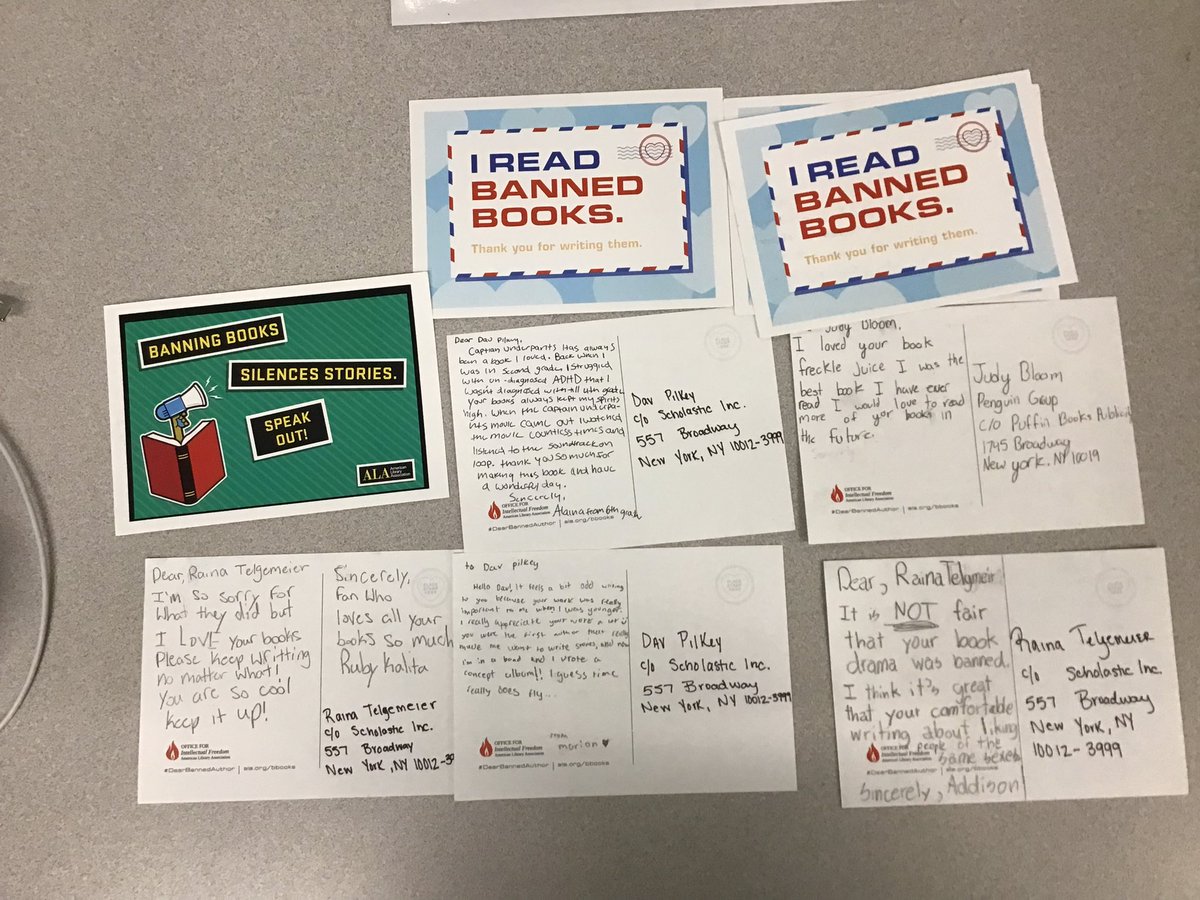 I READ
BANNED
BOOKS.
Thank you for writing them.
I READ
BANNED
BOOKS.
Thank you for writing them.
BANNING BOOKS
SILENCES STORIES.
SPEAK
OUT!
ALA American
Library
Association
Dear Dav Pilkey,
Captian Underpants has always
been a book I loved. Back when I
was in second grade, I struggled
with un-diagnosed ADHD that I
wasn't diagnosed with till 4th grade
Your books always kept my spirits
high. When the Captian Underpan-
nts movie came out I watched
the movie countless times and
listened to the soundtrack on
loop. thank you so much for
making this book and have
a wonderful day.
Sincerely,
Alaina from 6th grade
OFFICE FOR
Intellectual Freedom
American Library Association
#DearBannedAuthor | ala.org/bbooks
Dav Pilkey
c/o Scholastic Inc.
557 Broadway
New York, NY 10012-3999
Judy Bloom,
I loved your book
freckle Juice I was the
best book I have ever
read I would love to read
more of your books in
the future.
OFFICE FOR
Intellectual Freedom
American Library Association
#DearBannedAuthor | ala.org/bbooks
Judy Bloom
Penguin Group
C/O Puffin Books
1745 Broadway
New york, NY 10019
Dear, Raina Telgemeier
I'm so sorry for
What they did but
I LOVE your books
Please keep writting
no matter what!
You are so cool
keep it up!
OFFICE FOR
Intellectual Freedom
American Library Association
#DearBannedAuthor | ala.org/bbooks
Sincerely,
Fan Who
loves all your
books so much
Ruby Kalita
Raina Telgemeier
c/o Scholastic Inc.
557 Broadway
New York, NY 10012-39
to Dav pilkey
Hello Dav!, it feels a bit odd writing
to you because your work was really
important to me when I was younger.
I really appreciate your work a lot
you were the first author that really
made me want to write stories, and now
i'm in a band and I wrote a
concept album!! I guess time
really does fly...
from
marian ♥
OFFICE FOR
Intellectual Freedom
American Library Association
#DearBannedAuthor | ala.org/bbooks
Dav Pilkey
c/o Scholastic Inc.
557 Broadway
New York, NY 10012-3999
Dear, Raina Telgmeir
It is NOT fair
that your book
drama was banned.
I think it's great
that your comfortable
writing about liking
people of the
same sexes
OFFICE FOR
Intellectual Freedom
American Library Association
#DearBannedAuthor | ala.org/bbooks
Sincerely, Addison
Raina Telgemeier
c/o Scholastic Inc.
557 Broadway
New York, NY
10012-3999